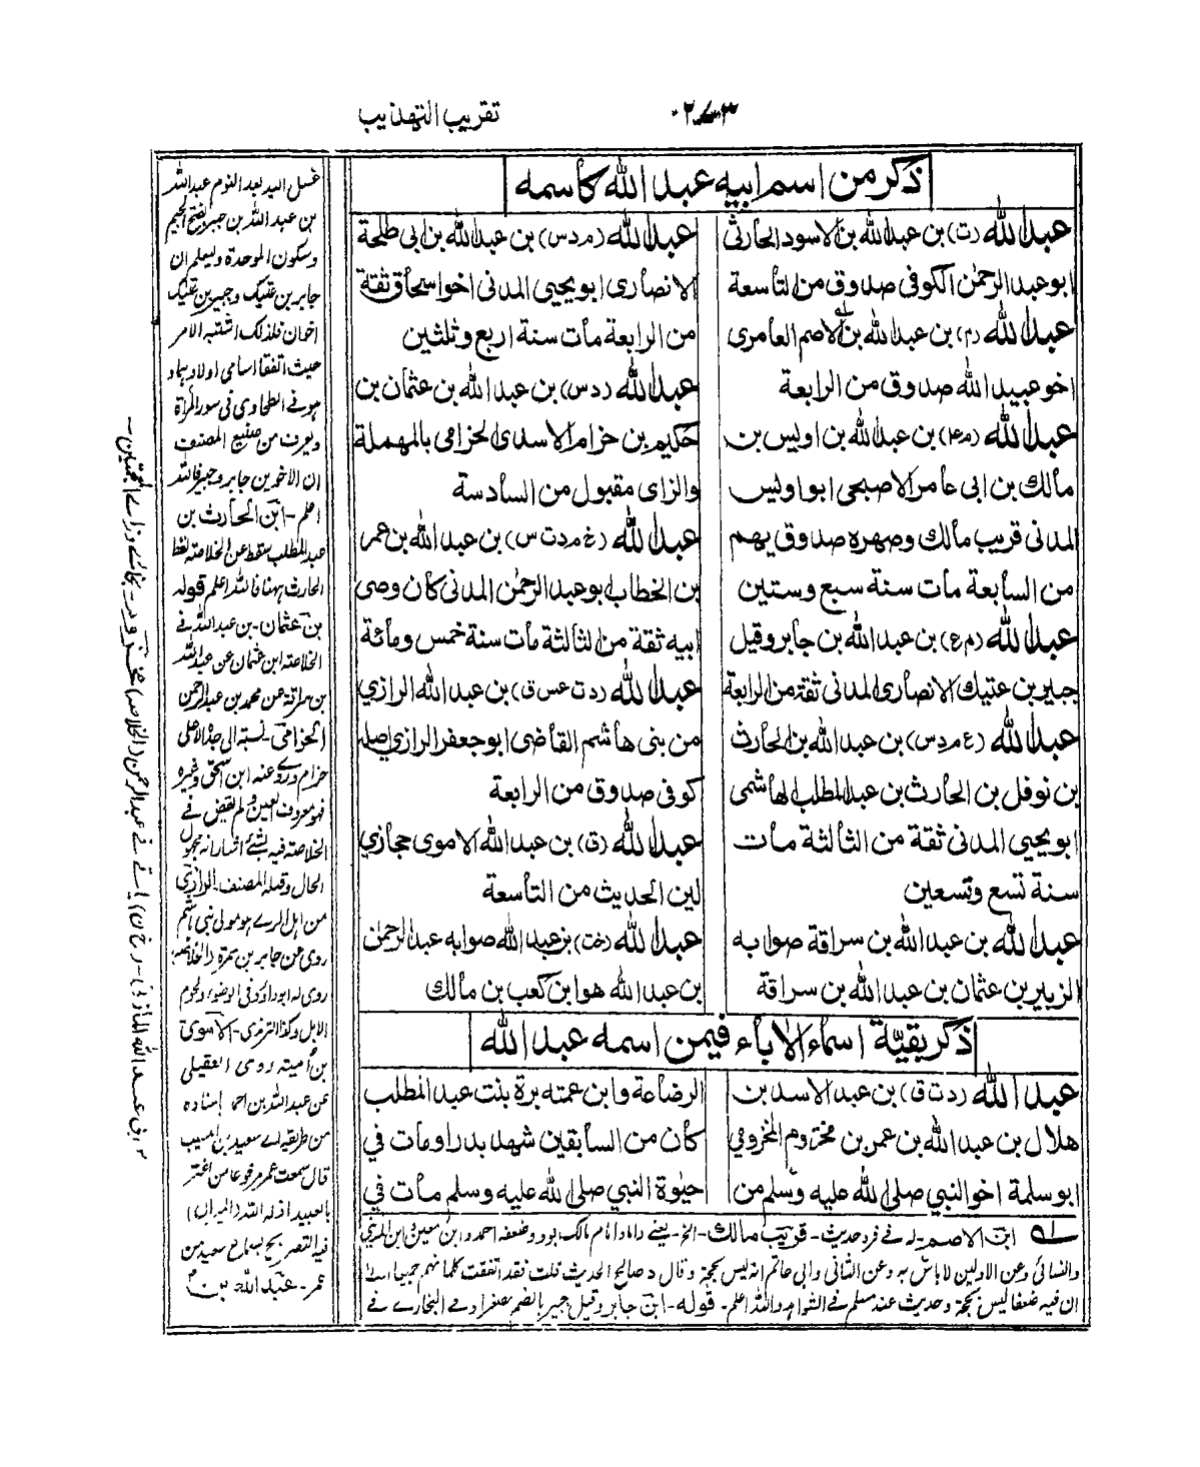 تقريب التهذيب
ذكر من اسم ابيه عبد الله كاسمه
عبد الله (ت) بن عبد الله بن الاسود الحارثى
ابو عبد الرحمٰن الكوفى صدوق من التاسعة
عبد الله (م) بن عبد الله بن الاصم العامرى
اخو عبيد الله صدوق من الرابعة
عبد الله (م۴) بن عبد الله بن اويس بن
مالك بن ابى عامر الاصبحى ابو اويس
المدنى قريب مالك وصهره صدوق يهم
من السابعة مات سنة سبع وستين
عبد الله (م ع) بن عبد الله بن جابر وقيل
جبير بن عتيك الانصارى المدنى ثقة من الرابعة
عبد الله (ع م د س) بن عبد الله بن الحارث
بن نوفل بن الحارث بن عبد المطلب الهاشمى
ابو يحيى المدنى ثقة من الثالثة مات
سنة تسع وتسعين
عبد الله بن عبد الله بن سراقة صوابه
الزبير بن عثمان بن عبد الله بن سراقة
عبد الله (م د س) بن عبد الله بن ابى طلحة
الانصارى ابو يحيى المدنى اخو اسحاق ثقة
من الرابعة مات سنة اربع وثلثين
عبد الله (د س) بن عبد الله بن عثمان بن
حكيم بن حزام الاسدى الحزامى بالمهملة
والزاى مقبول من السادسة
عبد الله (خ م د ت س) بن عبد الله بن عمر
بن الخطاب ابو عبد الرحمٰن المدنى كان وصى
ابيه ثقة من الثالثة مات سنة خمس ومائة
عبد الله (د ت عس ق) بن عبد الله الرازي
من بنى هاشم القاضى ابو جعفر الرازي اصله
كوفى صدوق من الرابعة
عبد الله (ق) بن عبد الله الاموى حجازي
لين الحديث من التاسعة
عبد الله (خت) بن عبد الله صوابه عبد الرحمٰن
بن عبد الله هو ابن كعب بن مالك
ذكر بقيّة اسماء الاٰباء فيمن اسمه عبد الله
عبد الله (د ت ق) بن عبد الاسد بن
هلال بن عبد الله بن عمر بن مخزوم المخزومي
ابو سلمة اخو النبي صلى الله عليه وسلم من
الرضاعة وابن عمته برة بنت عبد المطلب
كان من السابقين شهد بدرا ومات في
حيٰوة النبي صلى الله عليه وسلم مات في
ابن الاصم - له فے فرد حديث - قريب مالك - الخ يعنے داماد امام مالك بود وضعفه احمد وابن معين وابن المديني
والنسائى وعن الاولين لا باس به وعن الثانى وابى حاتم انه ليس بحجة وقال د صالح الحديث قلت فقد اتفقت كلماتهم جميعا على
ان فيه ضعفا ليس بحجة وحديثه عند مسلم فے الشواهد والله اعلم - قوله - ابن جابر وقيل جبير بالضم مصغرا وفے البخارے فے
غسل اليد بعد النوم عبد الله
بن عبد الله بن جبر بفتح الجيم
وسكون الموحدة وليعلم ان
جابر بن عتيك وجبير بن عتيك
اخوان فلذلك اشتبه الامر
حيث اتفقا اسامى اولادهما و
هو فے الطحاوى فى سور المرأة
ويعرف من صنيع المصنف
ان الاخوين جابر وجبير فالله
اعلم - ابن الحارث بن
عبد المطلب سقط عن الخلاصة لفظ
الحارث ههنا فالله اعلم قوله
بن عثمان - بن عبد الله فے
الخلاصة ابن عثمان عن عبد الله
بن سراقة عن محمد بن عبد الرحمن
الحزامى - نسبة الى جده الاعلى
حزام وروے عنه ابن اسحق وغيره
فهو معروف العين ولم يقض فے
الخلاصة فيه بشئ اشارة انه مجهول
الحال وقبله المصنف - الرازي
من اهل الرے هو مولى بنى هاشم
روى عن جابر بن سمرة (الخلاصة)
روى له ابو داود فى الوضوء ولحوم
الابل وكذا الترمذى - الاموى
بن امية روى العقيلى
عن عبد الله بن احمد اسناده
من طريقه لے سعيد بن المسيب
قال سمعت عمر مرفوعا من اعتز
بالعبيد اذله الله (الميزان)
فيه التصريح بسماع سعيد من
عمر - عبد الله بن